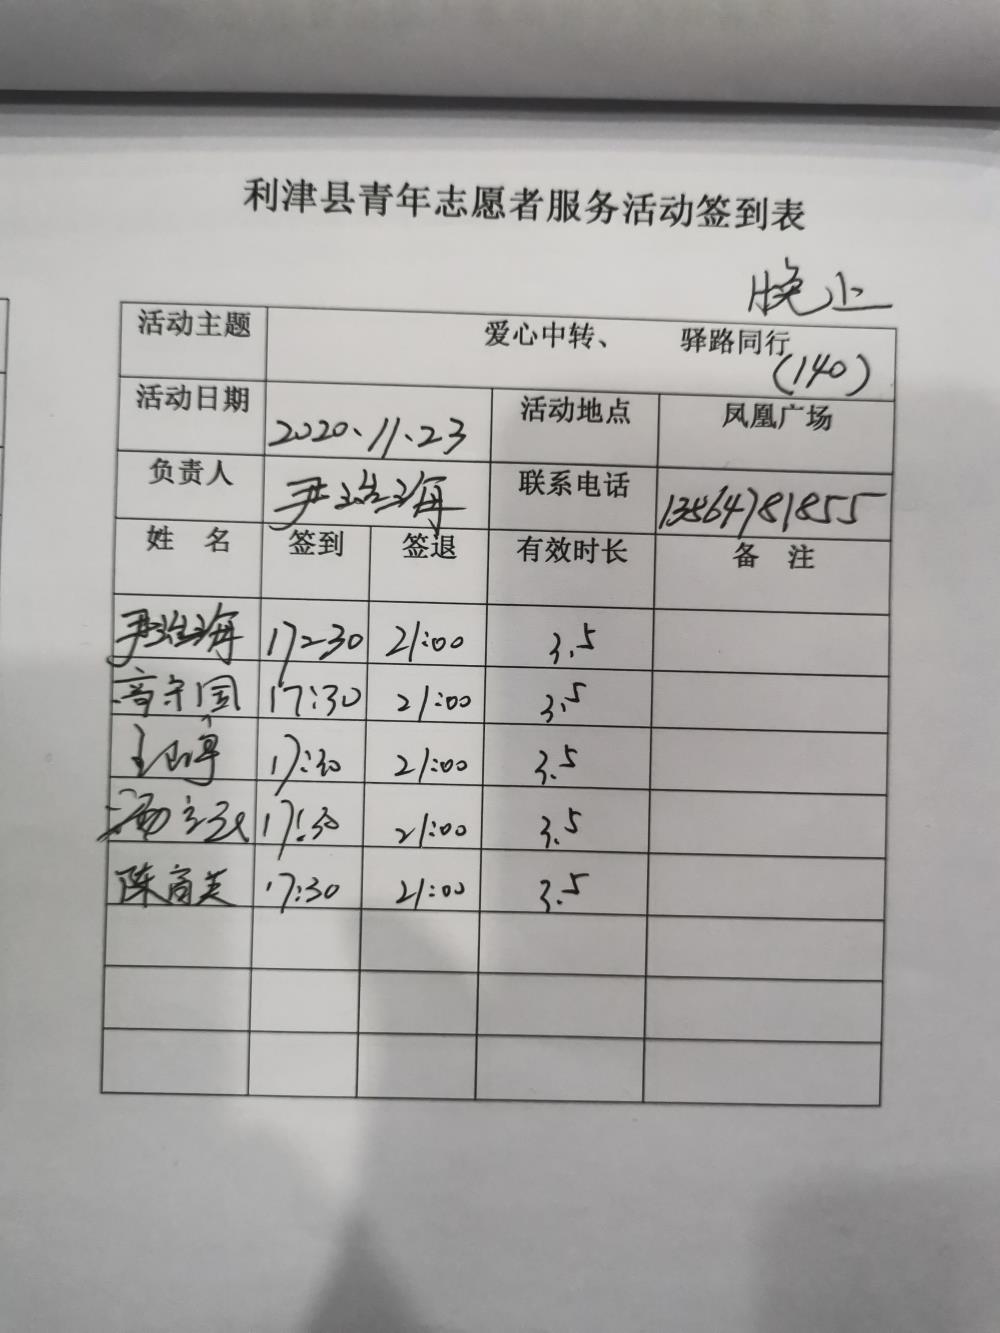 利津县青年志愿者服务活动签到表
晚上
活动主题 爱心中转、 驿路同行 (140)
活动日期 2020、11、23 活动地点 凤凰广场
负责人 尹海 联系电话 13864781855
姓 名 签到 签退 有效时长 备 注
尹海 17:30 21:00 3.5
高守国 17:30 21:00 3.5
17:30 21:00 3.5
17:30 21:00 3.5
陈富英 17:30 21:00 3.5